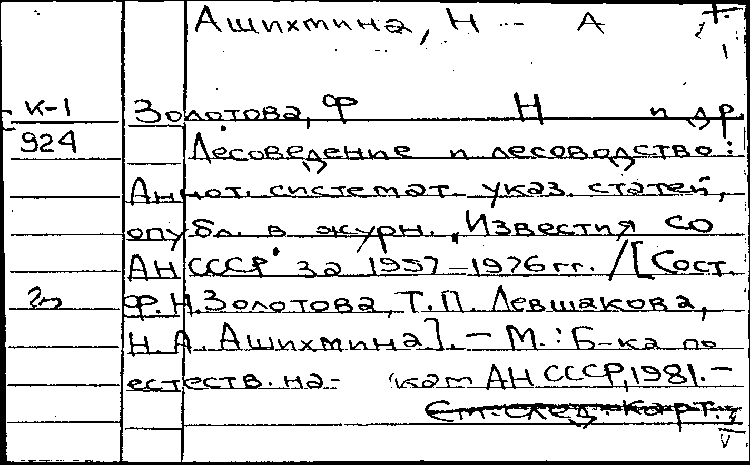 Ашихмина, Н А
К-1
924
Золотова, Ф Н и др.
Лесоведение и лесоводство:
Аннот. системат. указ. статей,
опубл. в журн. „Известия СО
АН СССР" за 1957–1976 гг. / [Сост.
Ф.Н. Золотова, Т.П. Левшакова,
Н.А. Ашихмина]. – М.: Б-ка по
естеств. на- кам АН СССР, 1981. –
См. след. карт.